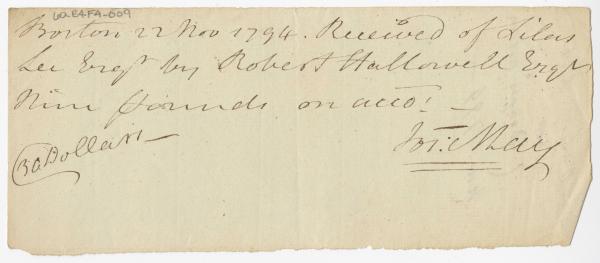 60.E4FA-009
Boston 22 Nov 1794. Received of Silas
Lee Esqr by Robert Hallowell Esqr
Nine Pounds on acco!
30 Dollars
Jos: May